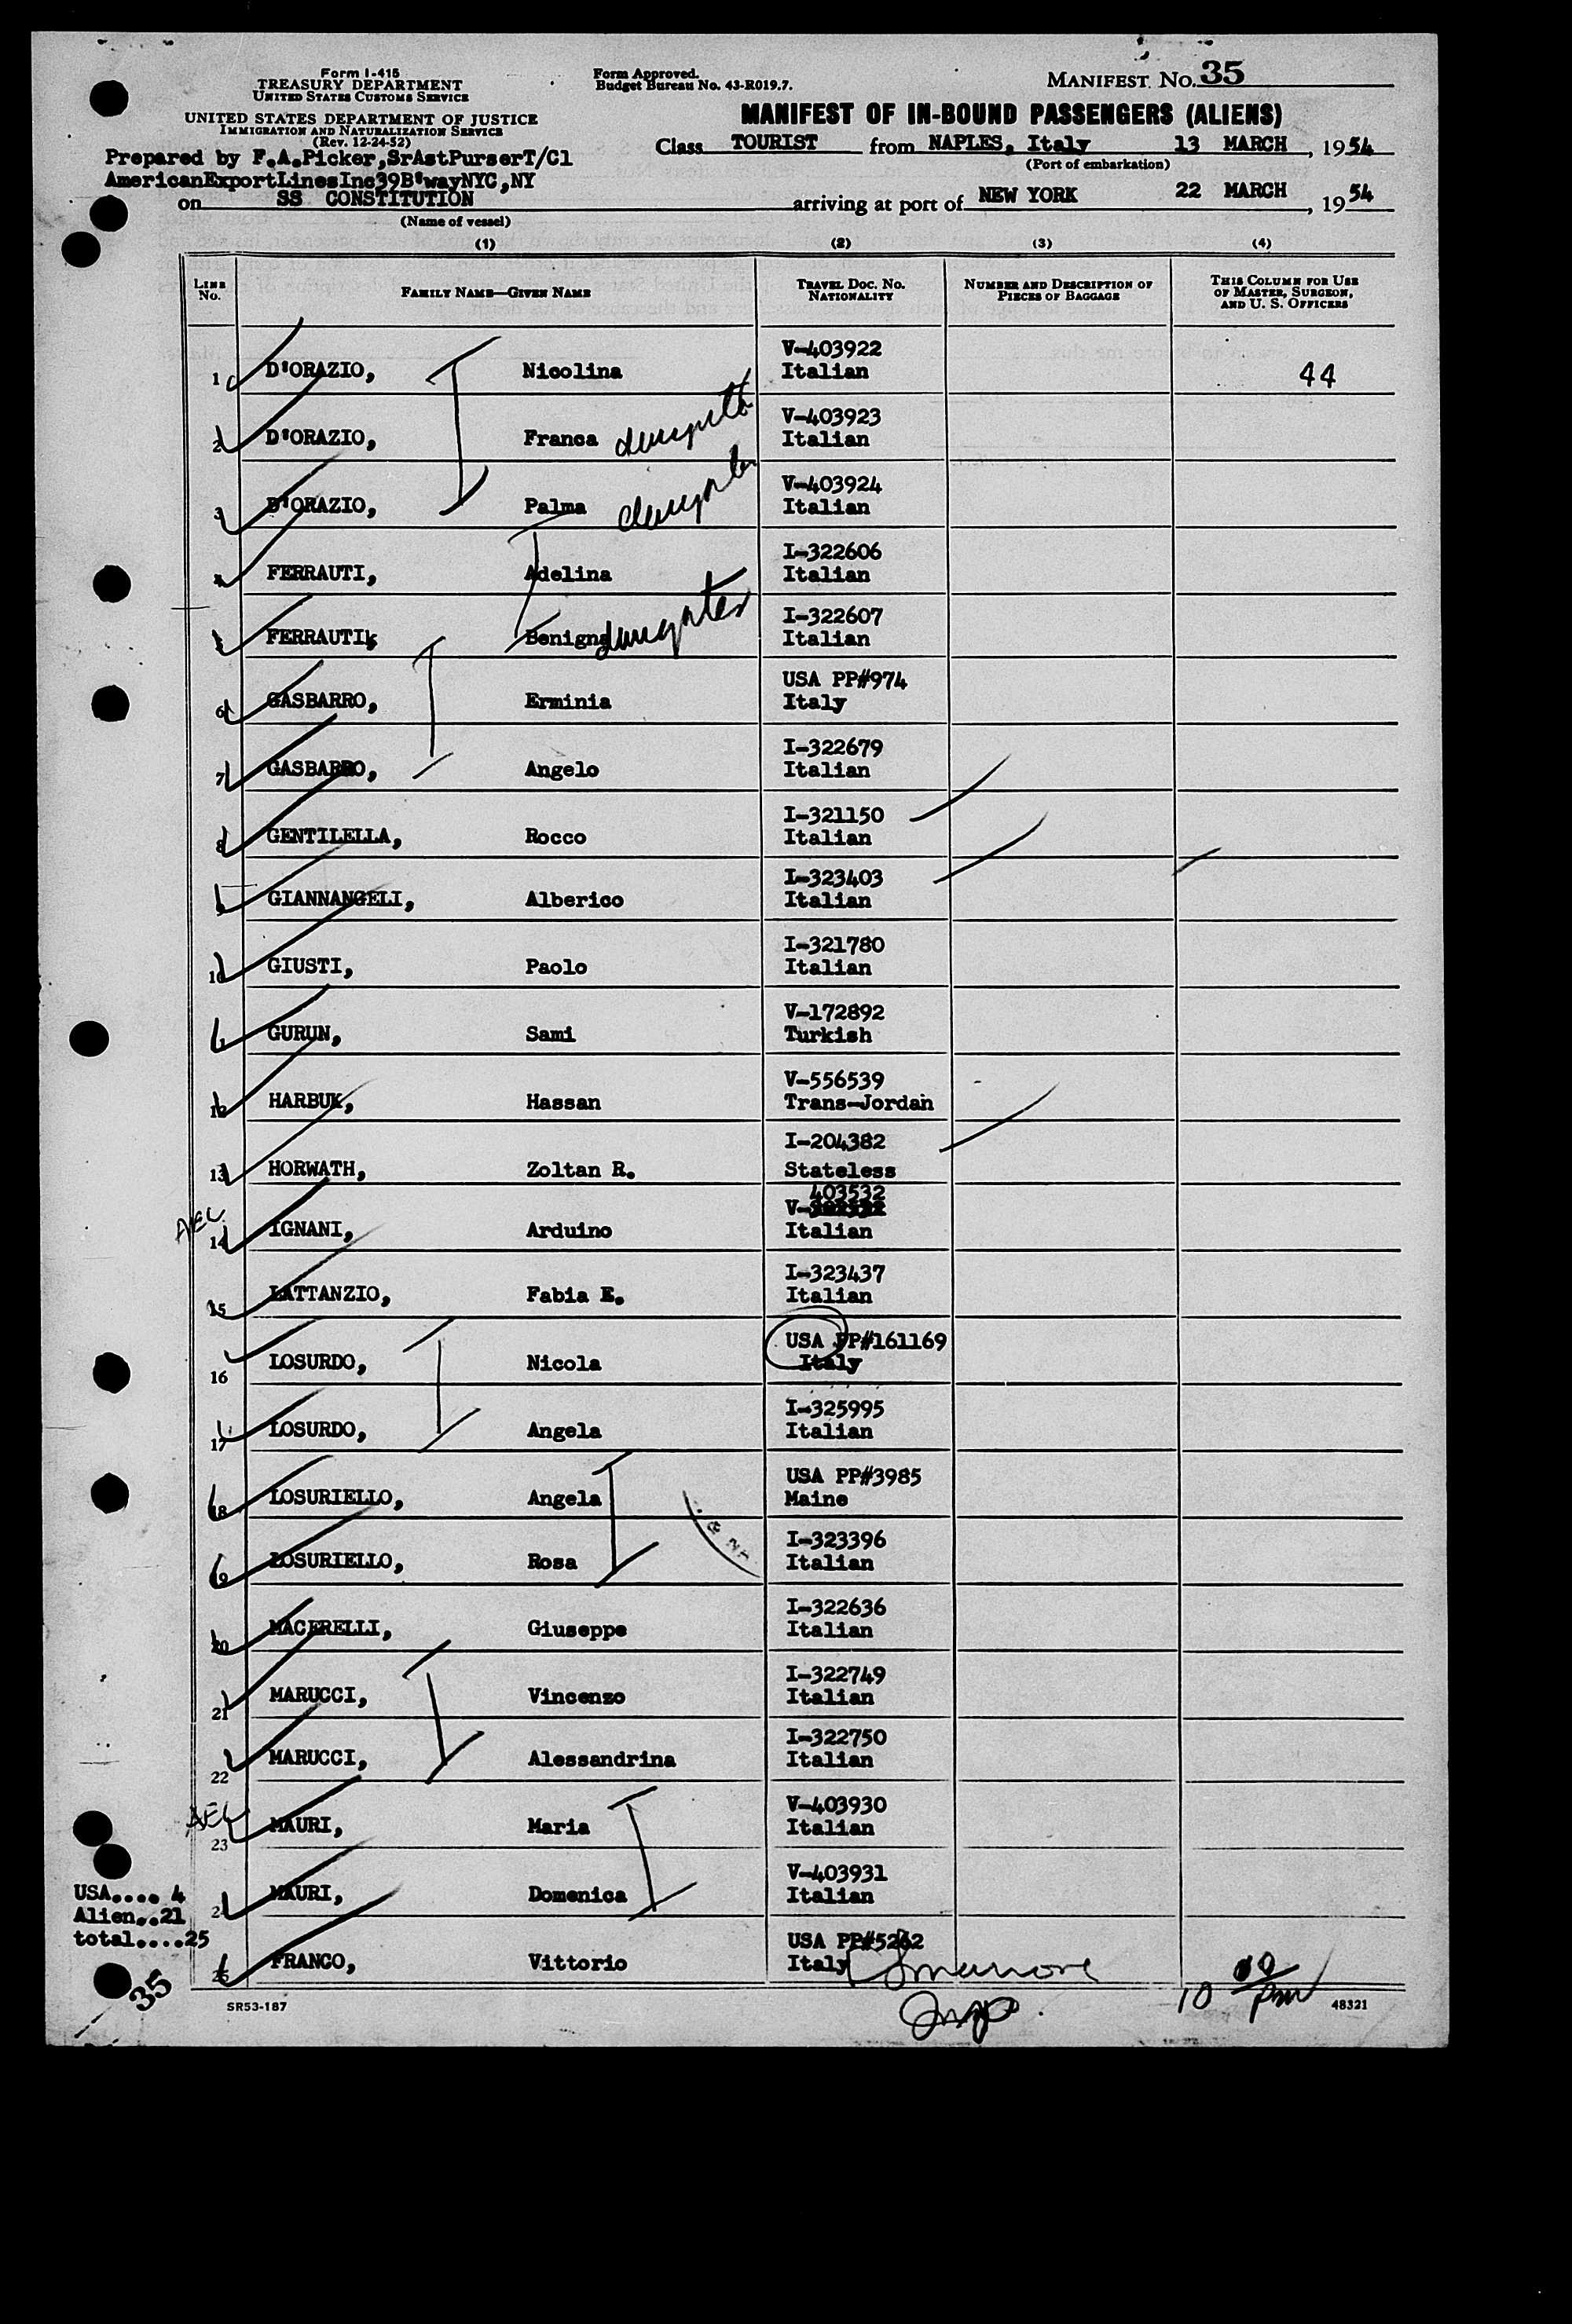 Form I-415
TREASURY DEPARTMENT
UNITED STATES CUSTOMS SERVICE
UNITED STATES DEPARTMENT OF JUSTICE
IMMIGRATION AND NATURALIZATION SERVICE
(Rev. 12-24-52)
Prepared by F.A.Picker,SrAstPurserT/Cl
AmericanExportLinesInc39B'wayNYC,NY
Form Approved.
Budget Bureau No. 43-R019.7.
MANIFEST NO. 35
MANIFEST OF IN-BOUND PASSENGERS (ALIENS)
Class TOURIST from NAPLES, Italy 13 MARCH, 1954
(Port of embarkation)
on SS CONSTITUTION arriving at port of NEW YORK 22 MARCH, 1954
(Name of vessel)
(1) (2) (3) (4)
LINE NO. FAMILY NAME—GIVEN NAME TRAVEL DOC. NO. NATIONALITY NUMBER AND DESCRIPTION OF PIECES OF BAGGAGE THIS COLUMN FOR USE OF MASTER, SURGEON, AND U. S. OFFICERS
V-403922
1 D'ORAZIO, Nicolina Italian 44
V-403923
2 D'ORAZIO, Franca daughter Italian
V-403924
3 D'ORAZIO, Palma daughter Italian
I-322606
4 FERRAUTI, Adelina Italian
I-322607
5 FERRAUTI, Benigna daughter Italian
USA PP#974
6 GASBARRO, Erminia Italy
I-322679
7 GASBARRO, Angelo Italian
I-321150
8 GENTILELLA, Rocco Italian
I-323403
9 GIANNANGELI, Alberico Italian
I-321780
10 GIUSTI, Paolo Italian
V-172892
11 GURUN, Sami Turkish
V-556539
12 HARBUK, Hassan Trans-Jordan
I-204382
13 HORWATH, Zoltan R. Stateless
403532
V-
14 IGNANI, Arduino Italian
I-323437
15 LATTANZIO, Fabia E. Italian
USA PP#161169
16 LOSURDO, Nicola Italy
I-325995
17 LOSURDO, Angela Italian
USA PP#3985
18 LOSURIELLO, Angela Maine
I-323396
19 LOSURIELLO, Rosa Italian
I-322636
20 MACERELLI, Giuseppe Italian
I-322749
21 MARUCCI, Vincenzo Italian
I-322750
22 MARUCCI, Alessandrina Italian
V-403930
23 MAURI, Maria Italian
V-403931
24 MAURI, Domenica Italian
USA PP#5262
25 FRANCO, Vittorio Italy
USA.... 4
Alien..21
total....25
35
Insp.
10 00 pm
SR53-187
48321